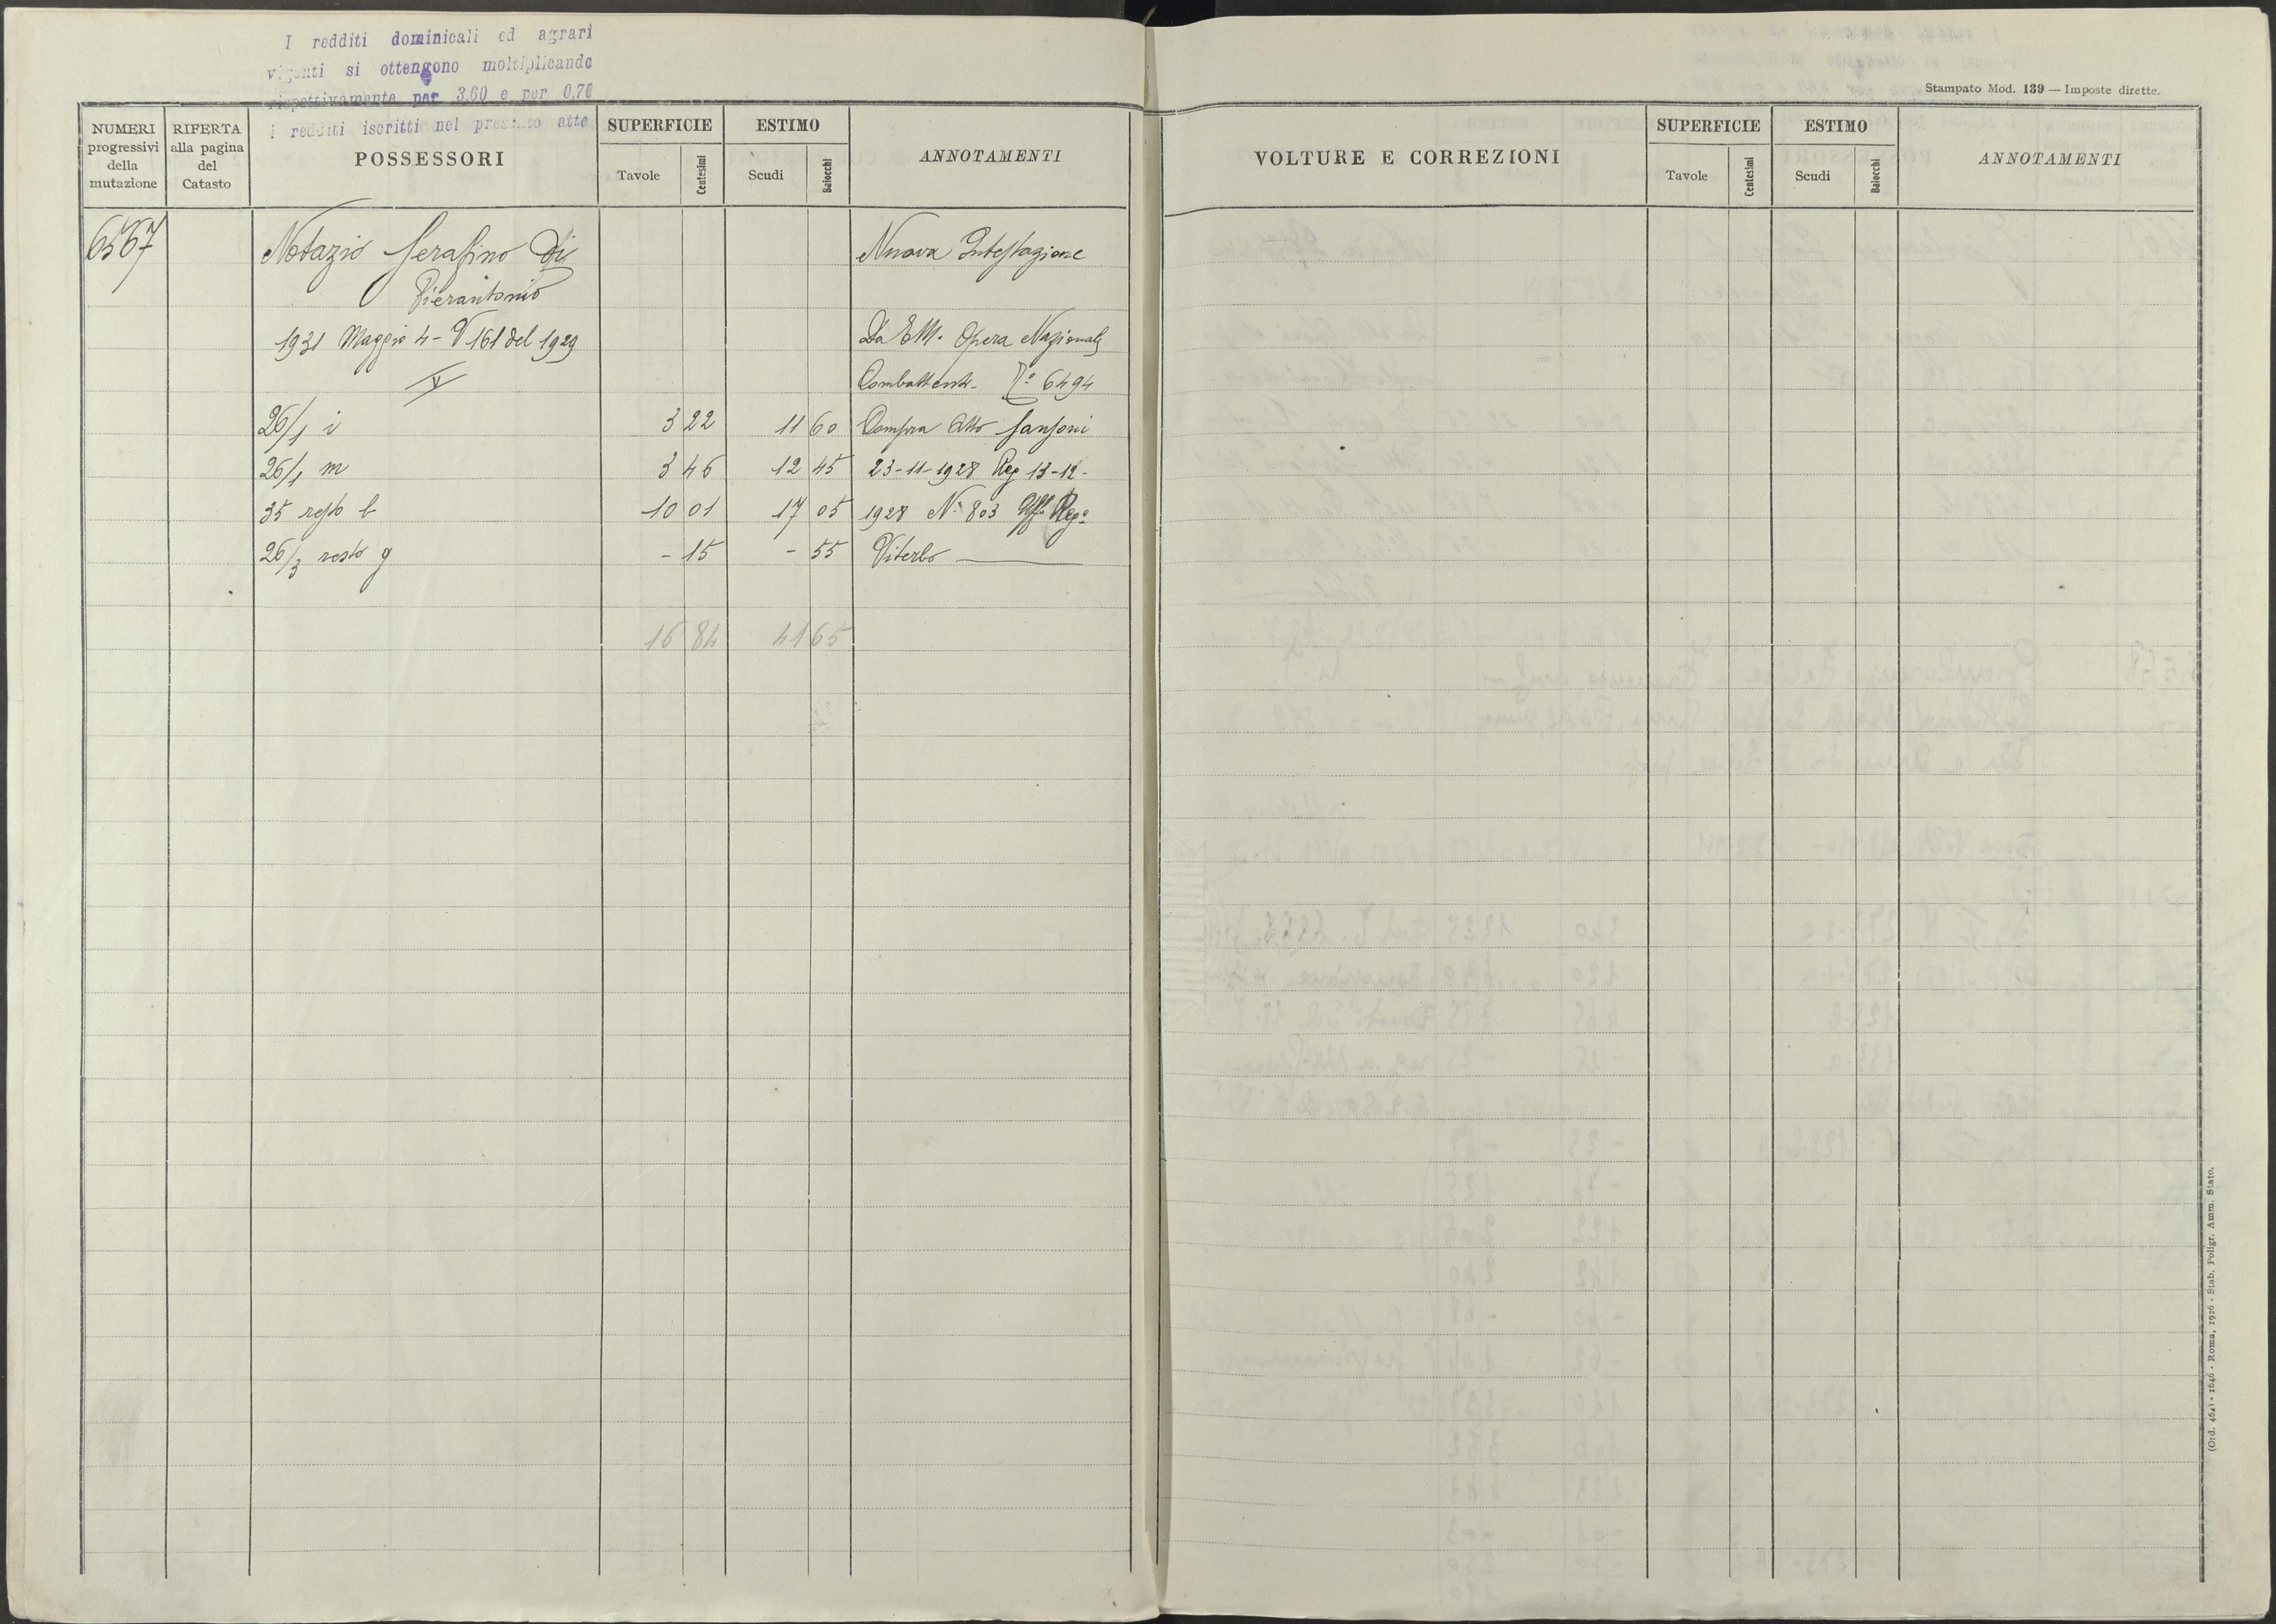 I redditi dominicali ed agrari
vigenti si ottengono moltiplicando
rispettivamente per 3,60 e per 0,70
i redditi iscritti nel presente atto
Stampato Mod. 139 — Imposte dirette.
NUMERI progressivi della mutazione
RIFERTA alla pagina del Catasto
POSSESSORI
SUPERFICIE
Tavole Centesimi
ESTIMO
Scudi Baiocchi
ANNOTAMENTI
VOLTURE E CORREZIONI
SUPERFICIE
Tavole Centesimi
ESTIMO
Scudi Baiocchi
ANNOTAMENTI
6567 Notazio Serafino Di Nuova Intestazione
Pierantonio
1931 Maggio 4 - V 161 del 1929 Da EM. Opera Nazionale
Combattenti - P° 6494
26/1 i 3 22 11 60 Compra Atto Sansoni
26/1 m 3 46 12 45 23-11-1928 Reg 13-12-
35 resto b 10 01 17 05 1928 N° 803 Uff° Reg°
26/3 resto g - 15 - 55 Viterbo
16 84 41 65
(Ord. 464) - 1646 - Roma, 1926 - Stab. Poligr. Amm. Stato.